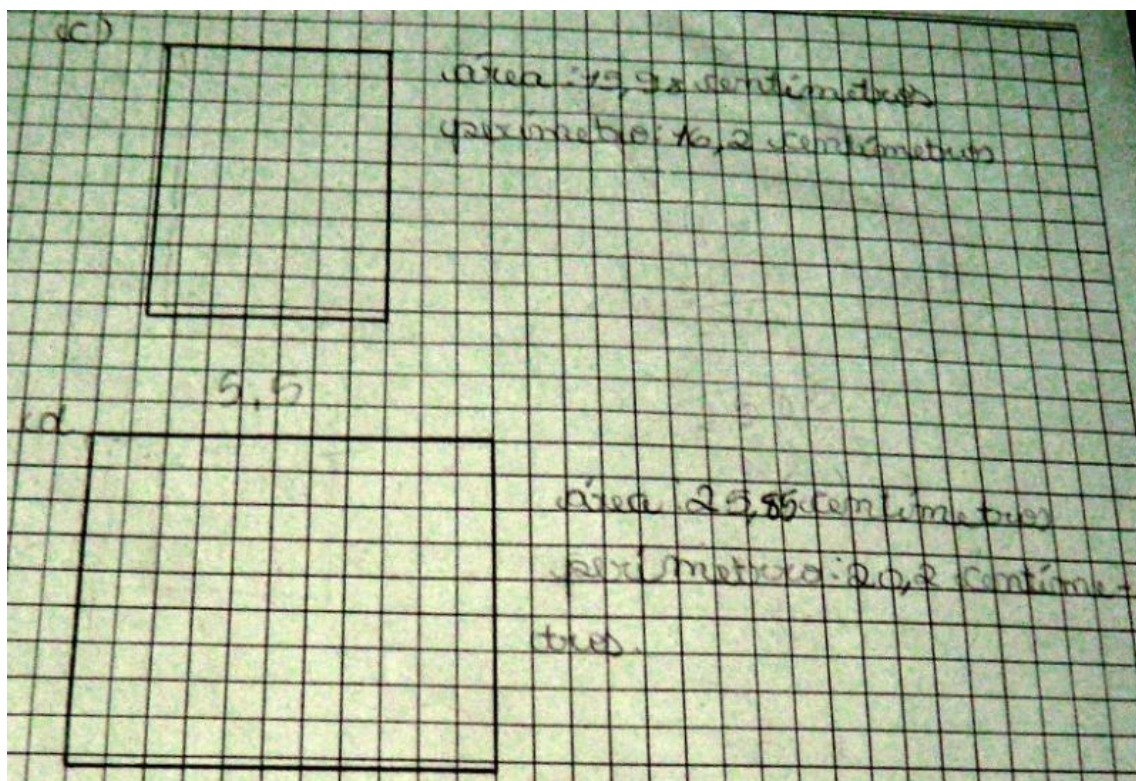 c)
área : 15,98 centimetros
perimetro: 16,2 centimetros
5,5
d
área : 25,85 centimetros
perimetro: 20,2 centime-
tros.